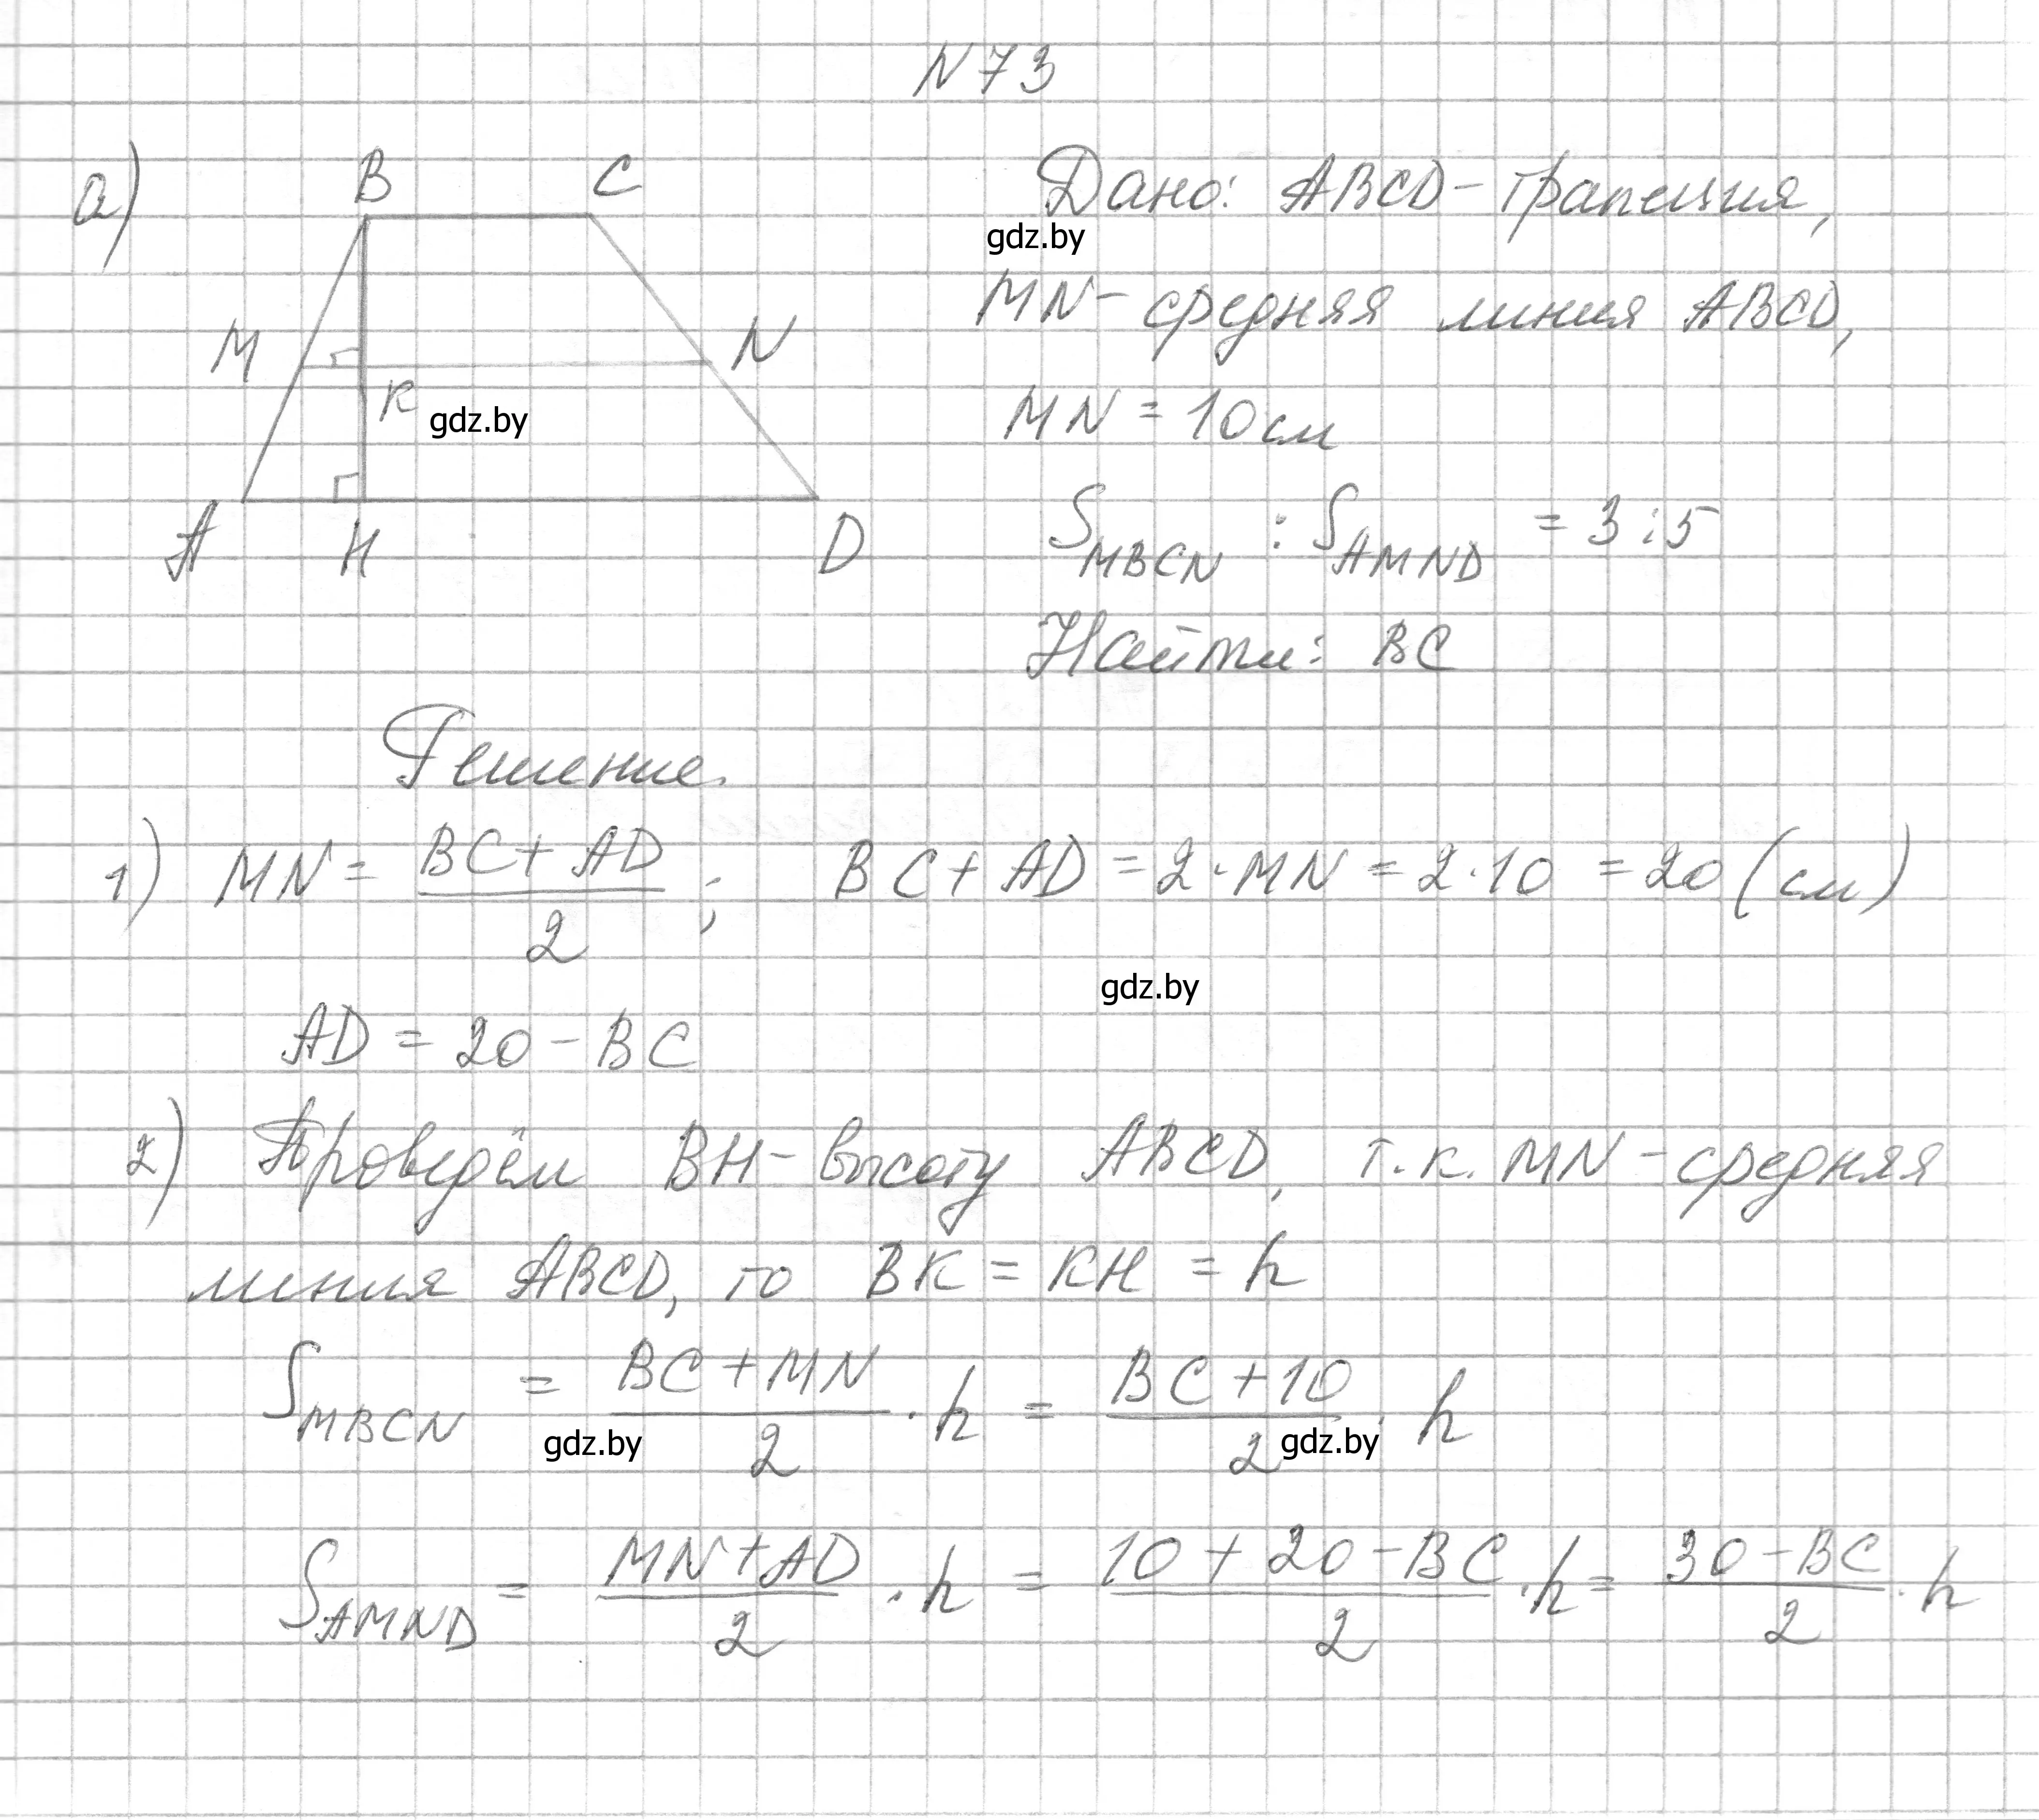 N73
а)
B C
M N
K
gdz.by
A H D
Дано: ABCD - трапеция,
gdz.by
MN - средняя линия ABCD,
MN = 10 см
S_MBCN : S_AMND = 3 : 5
Найти: BC
Решение.
1) MN = (BC + AD)/2 ; BC + AD = 2 · MN = 2 · 10 = 20 (см)
gdz.by
AD = 20 - BC
2) Проведём BH - высоту ABCD, т.к. MN - средняя
линия ABCD, то BK = KH = h
S_MBCN = (BC + MN)/2 · h = (BC + 10)/2 · h
gdz.by gdz.by
S_AMND = (MN + AD)/2 · h = (10 + 20 - BC)/2 · h = (30 - BC)/2 · h